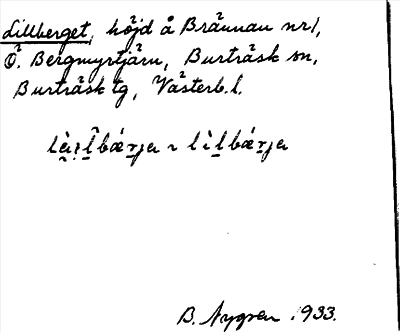 Lillberget, höjd å Brännan nr 1,
Ö. Bergmyrtjärn, Burträsk sn,
Burträsk tg, Västerb. l.
B. Nygren 1933.